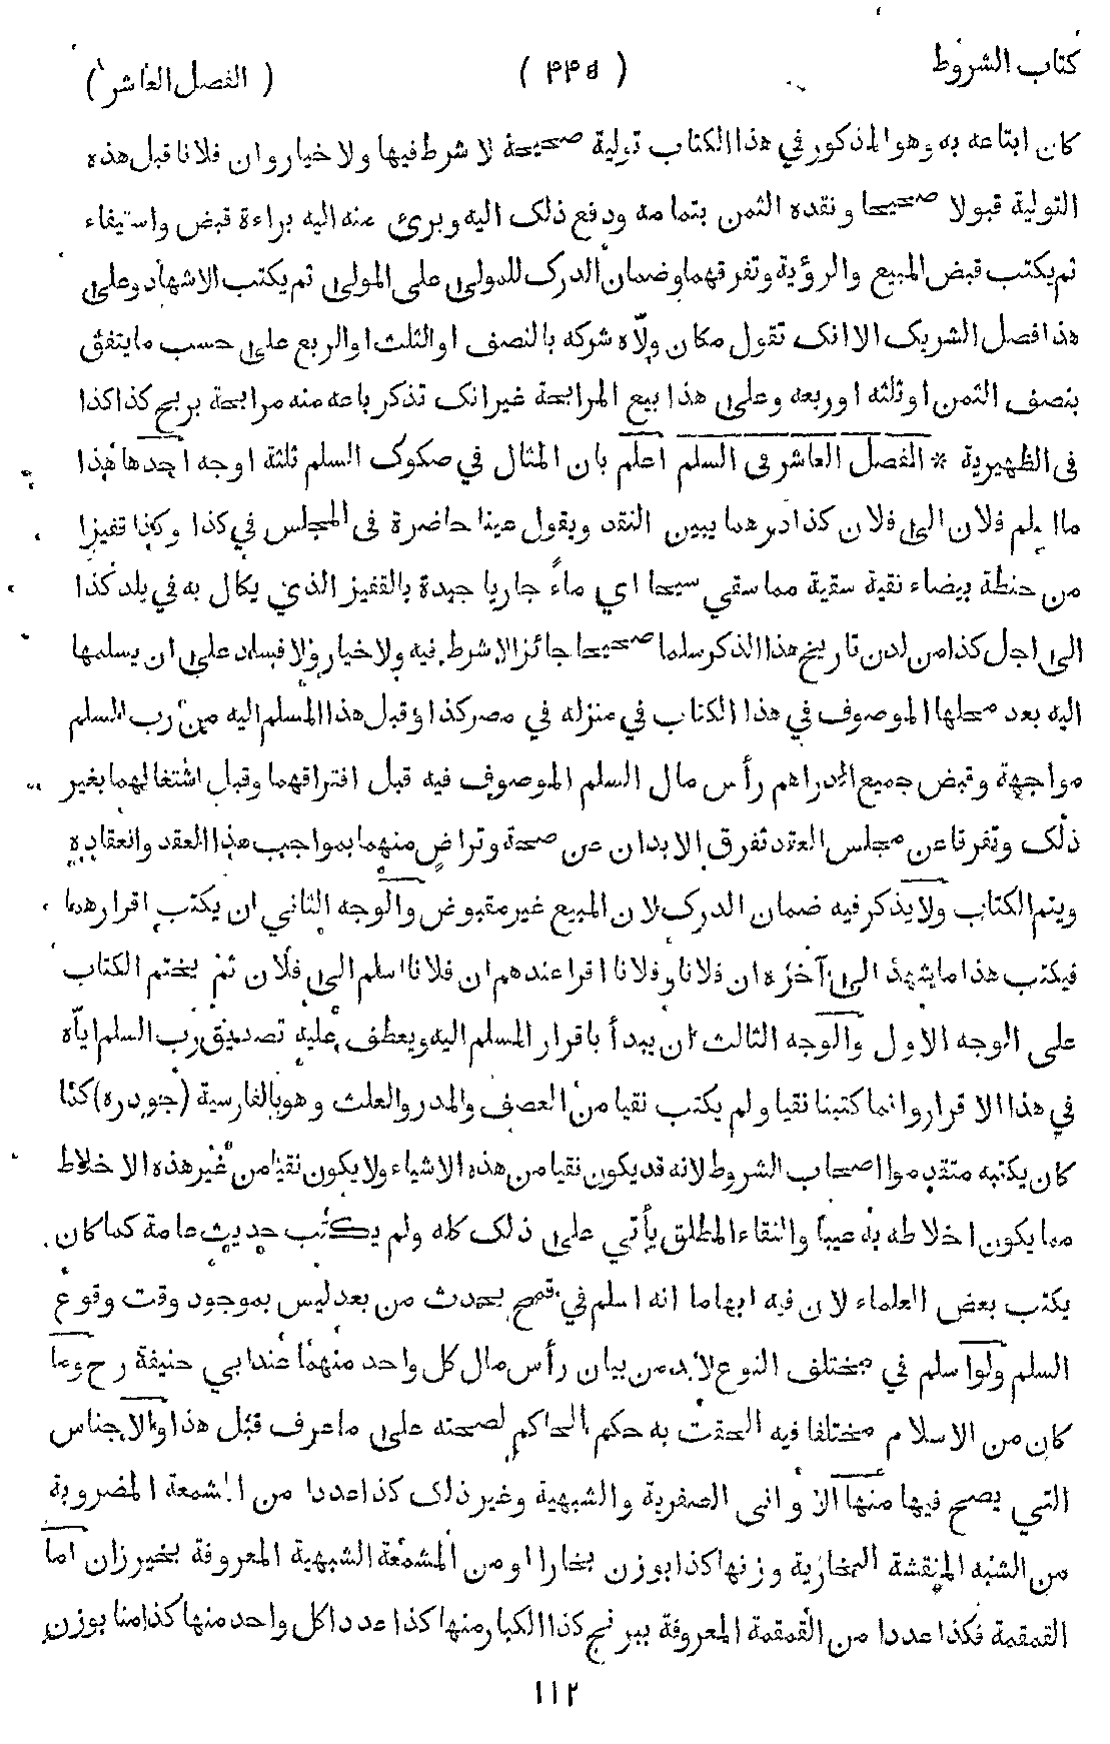 كتاب الشروط ( ٤٤٥ ) ( الفصل العاشر )
كان ابتاعه به وهو المذكور في هذا الكتاب تولية صحيحة لا شرط فيها ولا خيار وان فلانا قبل هذه
التولية قبولا صحيحا ونقده الثمن بتمامه ودفع ذلك اليه وبرئ منه اليه براءة قبض واستيفاء
ثم يكتب قبض المبيع والرؤية وتفرقهما وضمان الدرك للمولى على المولى ثم يكتب الاشهاد وعلى
هذا فصل الشريك الا انك تقول مكان ولّاه شركه بالنصف او الثلث او الربع على حسب ما يتفق
بنصف الثمن او ثلثه او ربعه وعلى هذا بيع المرابحة غير انك تذكر باعه منه مرابحة بربح كذا كذا
فى الظهيرية * الفصل العاشر فى السلم اعلم بان المثال في صكوك السلم ثلثة اوجه احدها هذا
ما اسلم فلان الى فلان كذا درهما يبين النقد ويقول عينا حاضرة فى المجلس في كذا وكذا قفيزا
من حنطة بيضاء نقية سقية مما سقي سيحا اي ماءً جاريا جيدة بالقفيز الذي يكال به في بلد كذا
الى اجل كذا من لدن تاريخ هذا الذكر سلما صحيحا جائزا لا شرط فيه ولا خيار ولا فساد على ان يسلمها
اليه بعد محلها الموصوف في هذا الكتاب في منزله في مصر كذا وقبل هذا المسلم اليه من رب السلم
مواجهة وقبض جميع الدراهم رأس مال السلم الموصوف فيه قبل افتراقهما وقبل اشتغالهما بغير
ذلك وتفرقا عن مجلس العقد تفرق الابدان عن صحة وتراضٍ منهما بمواجب هذا العقد وانعقاده
ويتم الكتاب ولا يذكر فيه ضمان الدرك لان المبيع غير مقبوض والوجه الثاني ان يكتب اقرارهما
فيكتب هذا ما يشهد الى آخره ان فلانا وفلانا اقرا عندهم ان فلانا اسلم الى فلان ثم يختم الكتاب
على الوجه الاول والوجه الثالث ان يبدأ باقرار المسلم اليه ويعطف عليه تصديق رب السلم ايّاه
في هذا الاقرار وانما كتبنا نقيا ولم يكتب نقيا من العصف والمدر والعلث وهو بالفارسية (جودره) كما
كان يكتبه متقدموا اصحاب الشروط لانه قد يكون نقيا من هذه الاشياء ولا يكون نقيا من غير هذه الاخلاط
مما يكون اخلاطه به عيبا والنقاء المطلق يأتي على ذلك كله ولم يكتب حديث عامة كما كان
يكتب بعض العلماء لان فيه ابهاما انه اسلم في قمح يحدث من بعد ليس بموجود وقت وقوع
السلم ولو اسلم في مختلف النوع لابد من بيان رأس مال كل واحد منهما عند ابي حنيفة رح وما
كان من الاسلام مختلفا فيه الحقت به حكم الحاكم لصحته على ما عرف قبل هذا والاجناس
التي يصح فيها منها الاوانى الصفرية والشبهية وغير ذلك كذا عددا من المشمعة المضروبة
من الشبه المنقشة البخارية وزنها كذا بوزن بخارا او من المشمعة الشبهية المعروفة بخيرزان اما
القمقمة فكذا عددا من القمقمة المعروفة ببرنج كذا الكبار منها كذا عددا كل واحد منها كذا منا بوزن
١١٢